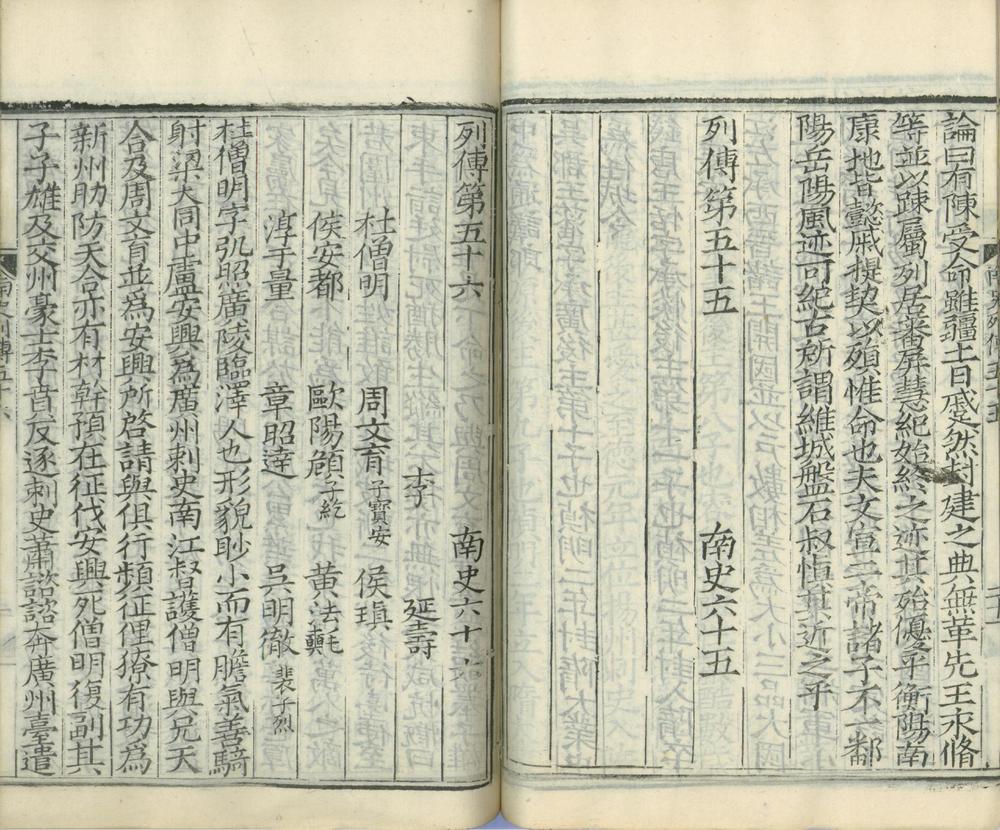 論曰有陳受命雖疆土日蹙然封建之典無革先王永脩
等並以踈屬列居蕃屏慧紀始終之迹其殆優乎衡陽南
康地皆懿戚提契以殞惟命也夫文宣二帝諸子不一鄱
陽岳陽風迹可紀古所謂維城盤石叔慎其近之乎
列傳第五十五
南史六十五
列傳第五十六
南史六十六
李
延壽
杜僧明
周文育子寳安
侯瑱
侯安都
歐陽頠子紇
黄法𣰰
淳于量
章昭達
吳明徹裴子烈
杜僧明字弘照廣陵臨澤人也形貌眇小而有膽氣善騎
射梁大同中盧安興爲廣州刺史南江督護僧明與兄天
合及周文育並爲安興所啓請與俱行頻征俚獠有功爲
新州助防天合亦有材幹預在征伐安興死僧明復副其
子子雄及交州豪士李賁反逐刺史蕭諮諮奔廣州臺遣